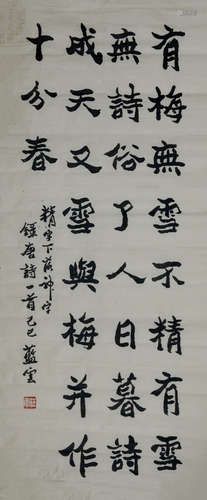 有梅無雪不精有雪
無詩俗了人日暮詩
成天又雪與梅并作
十分春
精字下落神字
錄唐詩一首己巳藍雲